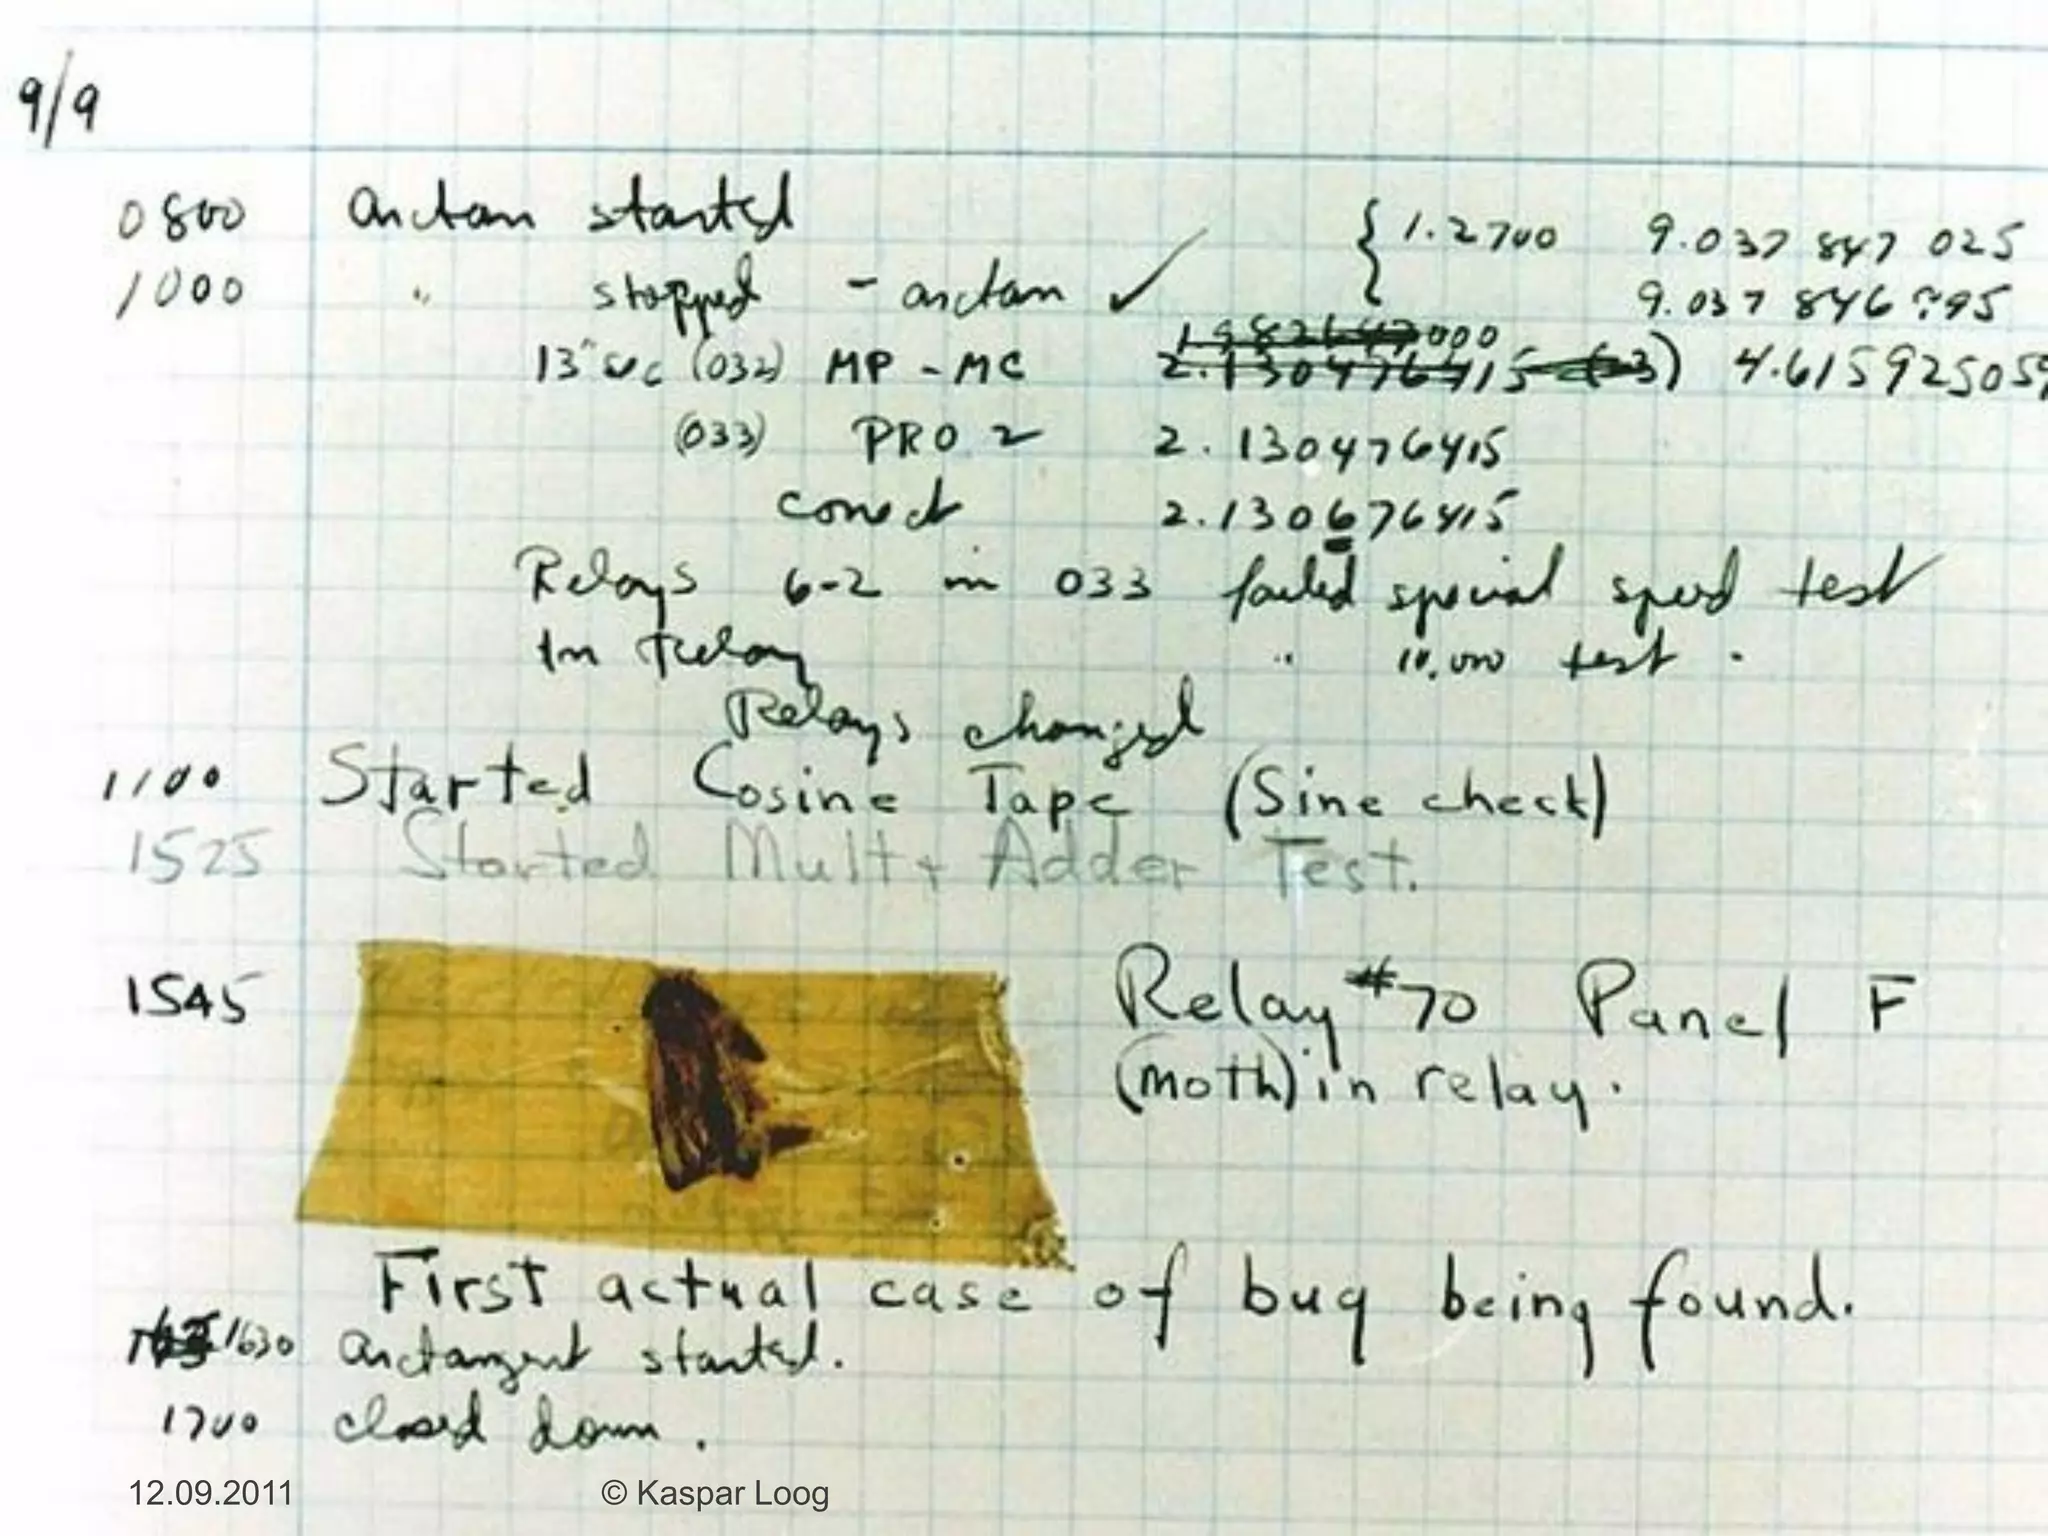 9/9
0800 arctan started { 1.2700 9.037 847 025
1000 " stopped - arctan ✓ 9.037 846 995
13" sec (032) MP - MC 000
2.130476415 (3) 4.615925059
(033) PRO 2 2.130476415
correct 2.130676415
Relays 6-2 in 033 failed special speed test
In Relay " 10,000 test .
Relays changed
1100 Started Cosine Tape (Sine check)
1525 Started Mult + Adder Test.
1545 Relay #70 Panel F
(moth) in relay.
First actual case of bug being found.
1630 arctangent started.
1700 closed down.
12.09.2011 © Kaspar Loog